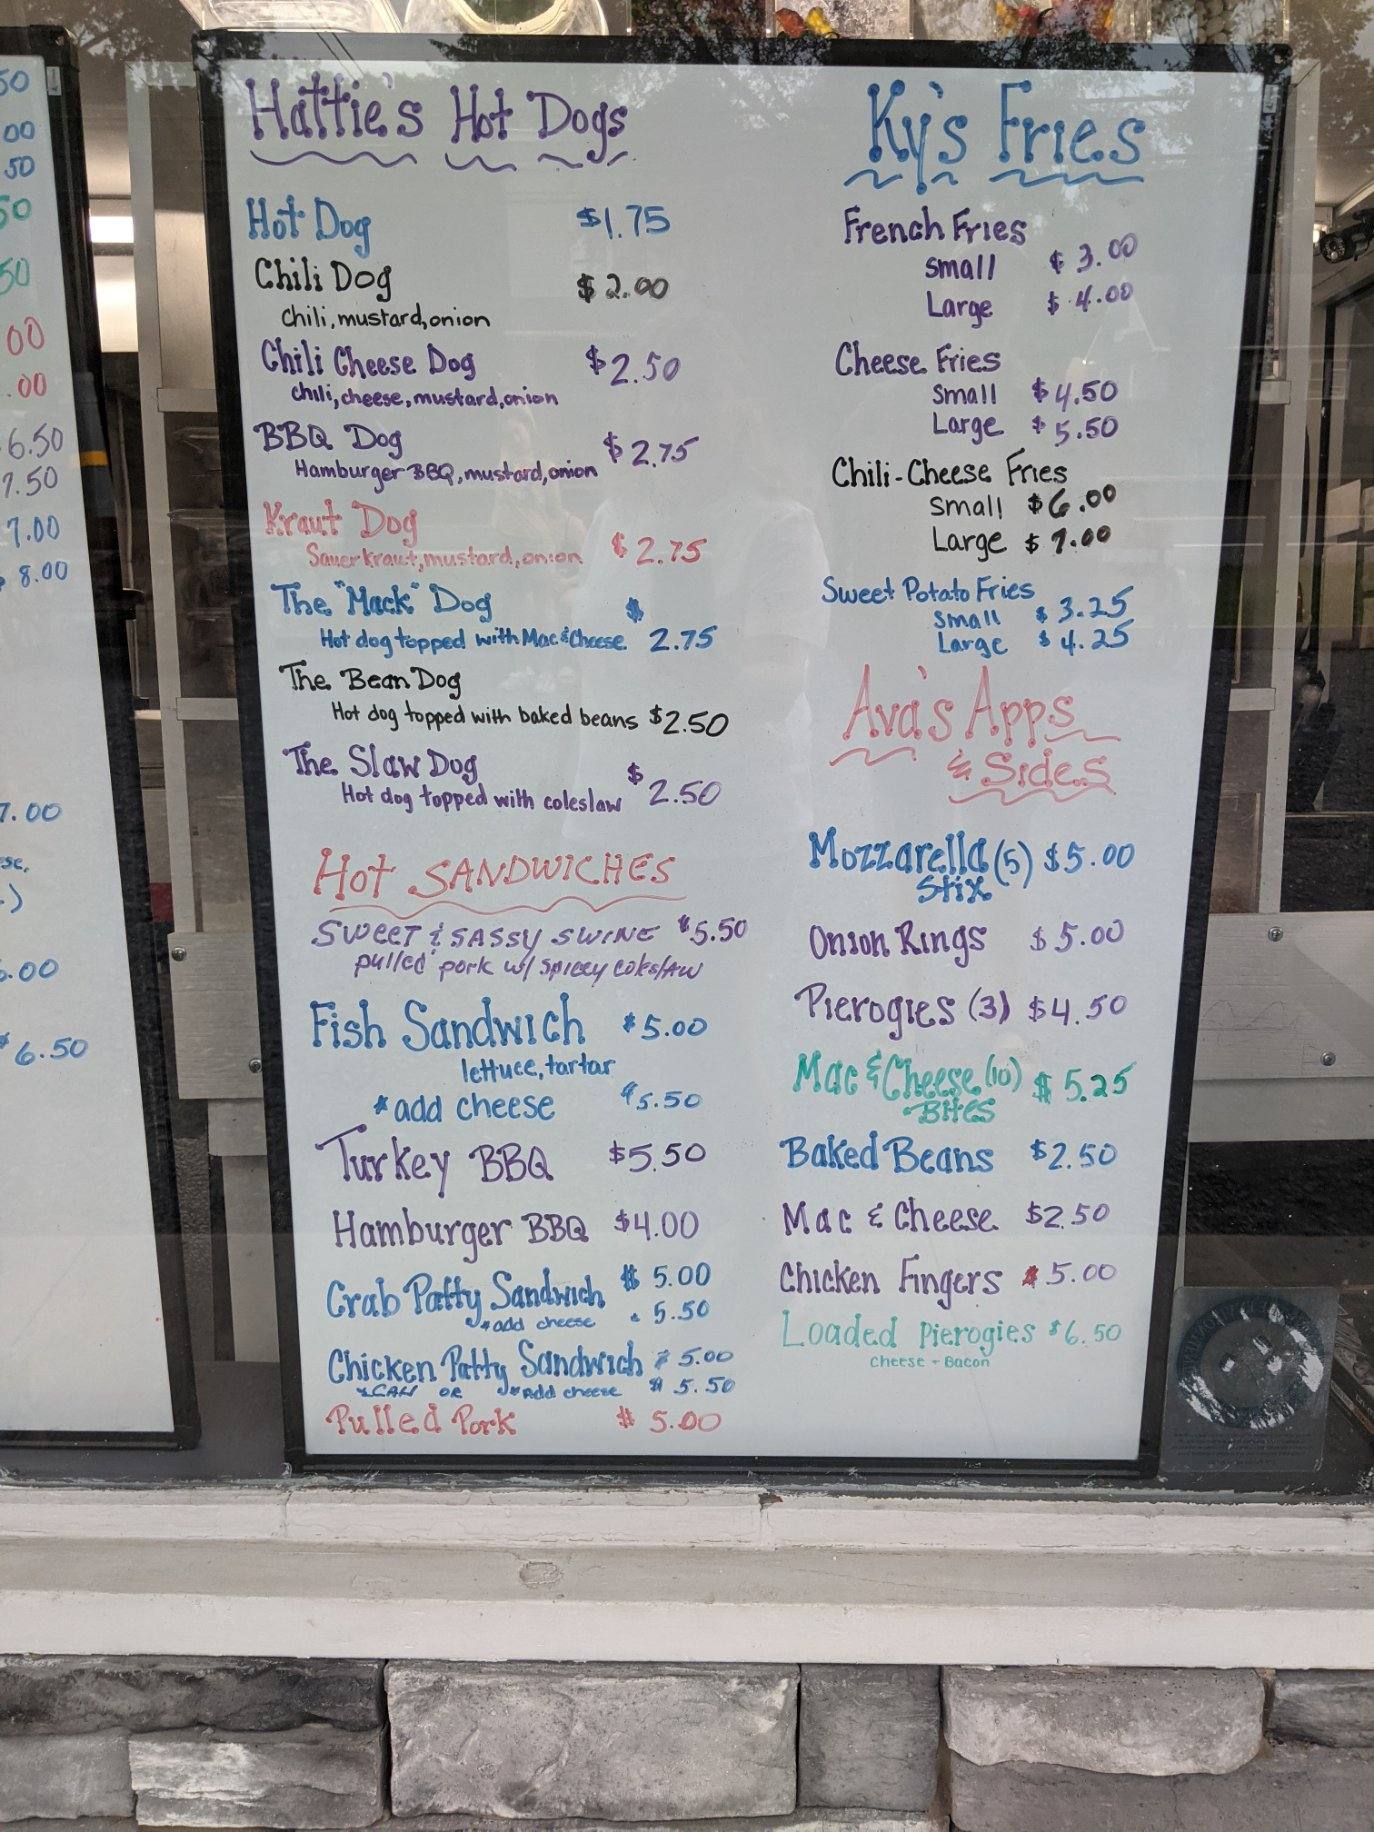 50
00
50
50
50
00
.00
6.50
7.50
7.00
8.00
7.00
se,
.)
6.00
$6.50
Hattie's Hot Dogs
Hot Dog $1.75
Chili Dog $2.00
chili, mustard, onion
Chili Cheese Dog $2.50
chili, cheese, mustard, onion
BBQ Dog $2.75
Hamburger BBQ, mustard, onion
Kraut Dog
Sauerkraut, mustard, onion $2.75
The "Mack" Dog $
Hot dog topped with Mac & Cheese. 2.75
The Bean Dog
Hot dog topped with baked beans $2.50
The Slaw Dog $
Hot dog topped with coleslaw 2.50
Hot SANDWICHES
SWEET & SASSY SWINE $5.50
pulled pork w/ spicey coleslaw
Fish Sandwich $5.00
lettuce, tartar
*add cheese $5.50
Turkey BBQ $5.50
Hamburger BBQ $4.00
Crab Patty Sandwich $5.00
*add cheese 5.50
Chicken Patty Sandwich $5.00
OR *Add cheese $5.50
Pulled Pork $5.00
Ky's Fries
French Fries
Small $3.00
Large $4.00
Cheese Fries
Small $4.50
Large $5.50
Chili-Cheese Fries
Small $6.00
Large $7.00
Sweet Potato Fries
Small $3.25
Large $4.25
Ava's Apps
& Sides
Mozzarella (5) $5.00
Stix
Onion Rings $5.00
Pierogies (3) $4.50
Mac & Cheese (10) $5.25
Bites
Baked Beans $2.50
Mac & Cheese $2.50
Chicken Fingers $5.00
Loaded Pierogies $6.50
Cheese - Bacon